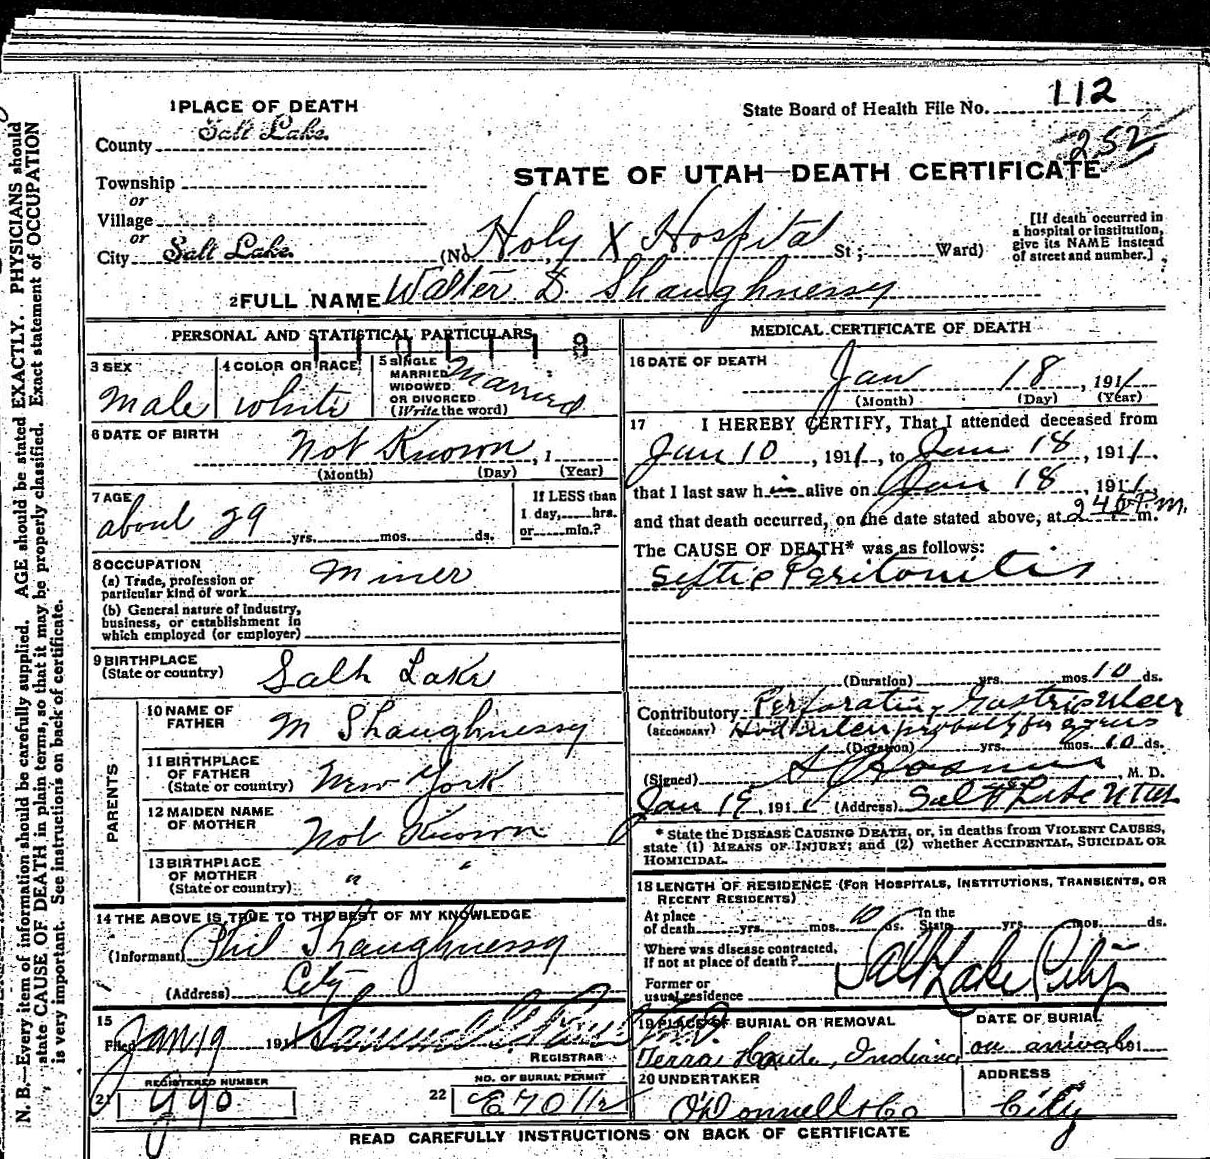 1 PLACE OF DEATH
State Board of Health File No. 112
County Salt Lake.
252
STATE OF UTAH—DEATH CERTIFICATE
Township
or
Village
or
City Salt Lake. (No. Holy X Hospital St; Ward)
[If death occurred in
a hospital or institution,
give its NAME instead
of street and number.]
2 FULL NAME Walter D. Shaughnessy
PERSONAL AND STATISTICAL PARTICULARS
3 SEX
Male
4 COLOR OR RACE
White
5 SINGLE
MARRIED
WIDOWED
OR DIVORCED
(Write the word)
Married
6 DATE OF BIRTH
Not Known, 1
(Month) (Day) (Year)
7 AGE
about 29 yrs. mos. ds.
If LESS than
1 day, hrs.
or min.?
8 OCCUPATION
(a) Trade, profession or
particular kind of work Miner
(b) General nature of industry,
business, or establishment in
which employed (or employer)
9 BIRTHPLACE
(State or country) Salt Lake
PARENTS
10 NAME OF
FATHER M Shaughnessy
11 BIRTHPLACE
OF FATHER
(State or country) New York
12 MAIDEN NAME
OF MOTHER Not Known
13 BIRTHPLACE
OF MOTHER
(State or country) " "
14 THE ABOVE IS TRUE TO THE BEST OF MY KNOWLEDGE
(Informant) Phil Shaughnessy
(Address) City
15
Filed Jan 19 191
REGISTRAR
21 REGISTERED NUMBER
22 NO. OF BURIAL PERMIT
MEDICAL CERTIFICATE OF DEATH
16 DATE OF DEATH
Jan 18, 1911
(Month) (Day) (Year)
17 I HEREBY CERTIFY, That I attended deceased from
Jan 10, 1911, to Jan 18, 1911,
that I last saw him alive on Jan 18, 1911,
and that death occurred, on the date stated above, at 240 P.m. m.
The CAUSE OF DEATH* was as follows:
Septic Peritonitis
(Duration) yrs. mos. 10 ds.
Contributory Perforating Gastric Ulcer
(SECONDARY) Had ulcer probably for 2 years
(Duration) yrs. mos. 10 ds.
(Signed) M. D.
Jan 19, 191 (Address) Salt Lake Utah
* State the DISEASE CAUSING DEATH, or, in deaths from VIOLENT CAUSES,
state (1) MEANS OF INJURY; and (2) whether ACCIDENTAL, SUICIDAL OR
HOMICIDAL.
18 LENGTH OF RESIDENCE (FOR HOSPITALS, INSTITUTIONS, TRANSIENTS, OR
RECENT RESIDENTS)
At place
of death yrs. mos. 10 ds.
In the
State yrs. mos. ds.
Where was disease contracted,
if not at place of death?
Former or
usual residence Salt Lake City
19 PLACE OF BURIAL OR REMOVAL
Terra Haute, Indiana
DATE OF BURIAL
on arrival 191
20 UNDERTAKER
O'Donnell & Co
ADDRESS
City
READ CAREFULLY INSTRUCTIONS ON BACK OF CERTIFICATE
N. B.—Every item of information should be carefully supplied. AGE should be stated EXACTLY. PHYSICIANS should
state CAUSE OF DEATH in plain terms, so that it may be properly classified. Exact statement of OCCUPATION
is very important. See instructions on back of certificate.